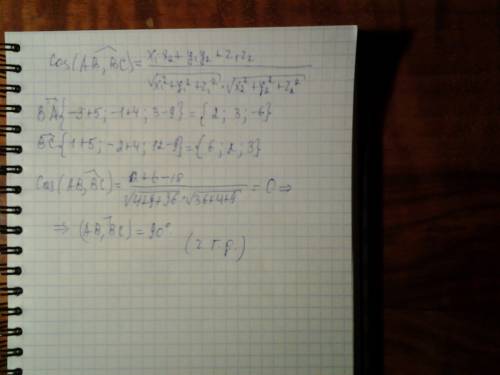 cos(AB, BC) = x₁·x₂ + y₁y₂ + z₁z₂ / √x₁² + y₁² + z₁² · √x₂² + y₂² + z₂²
BA{-3+5; -1+4; 3-9} = {2; 3; -6}
BC{1+5; -2+4; 12-9} = {6; 2; 3}
Cos(AB, BC) = 12+6-18 / √4+9+36 · √36+4+9 = 0 ⇒
⇒ (AB, BC) = 90°
(ч.т.д.)